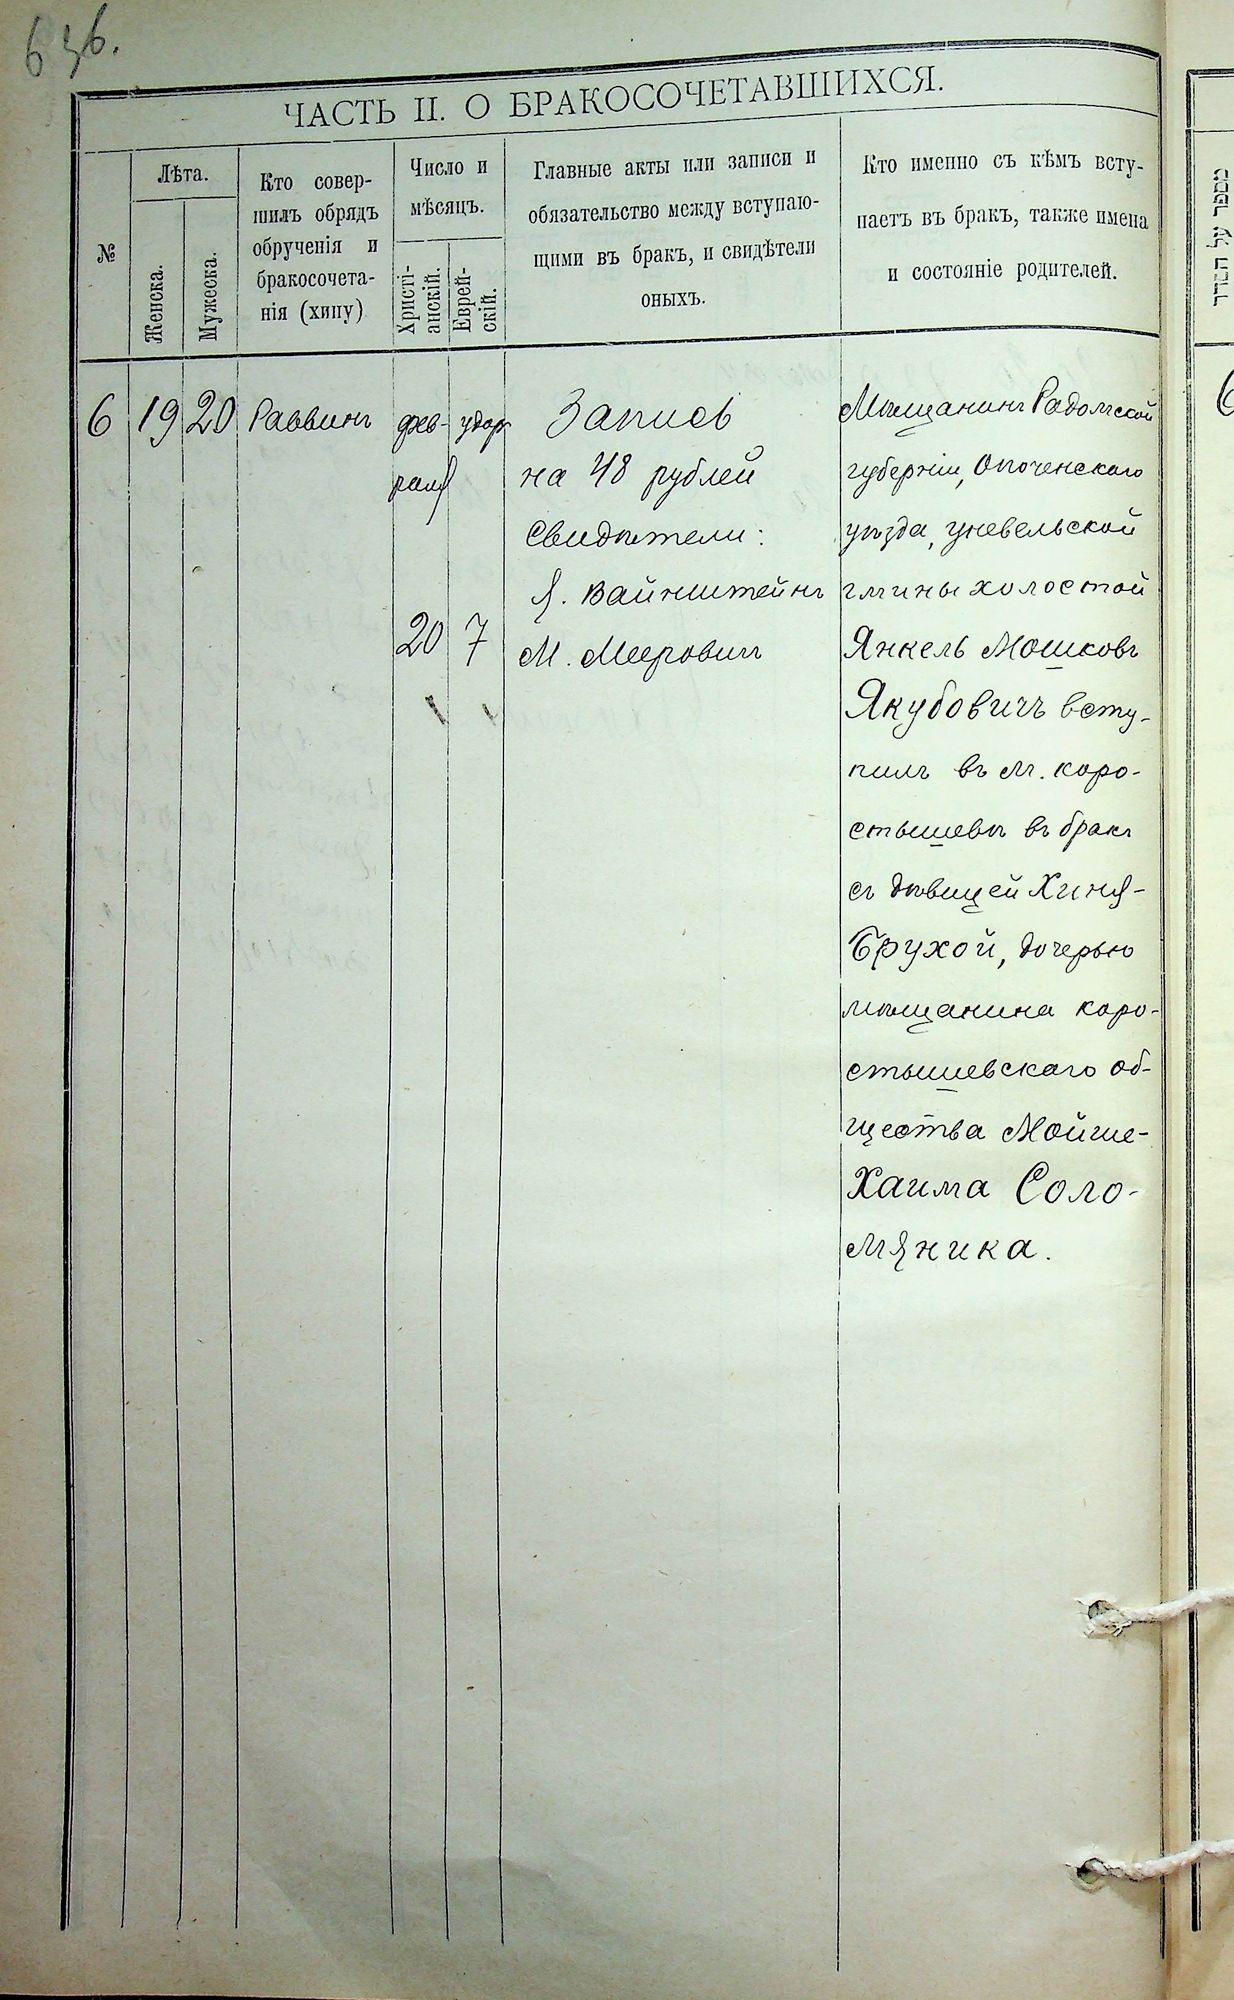 636.
ЧАСТЬ II. О БРАКОСОЧЕТАВШИХСЯ.
№
Лѣта.
Женска.
Мужеска.
Кто совер-
шилъ обрядъ
обрученія и
бракосочета-
нія (хипу)
Число и
мѣсяцъ.
Христі-
анскій.
Еврей-
скій.
Главные акты или записи и
обязательство между вступаю-
щими въ бракъ, и свидѣтели
оныхъ.
Кто именно съ кѣмъ всту-
паетъ въ бракъ, также имена
и состояніе родителей.
6
19
20
Раввинъ
фев-
раля
20
удоръ
7
Запись
на 48 рублей
Свидѣтели:
Я. Вайнштейнъ
М. Мееровичъ
Мѣщанинъ Радомской
губерніи, Опоченскаго
уѣзда, Уневельской
гмины холостой
Янкель Мошковъ
Якубовичъ всту-
пилъ въ м. Коро-
стышевѣ въ бракъ
съ дѣвицей Хиня-
Брухой, дочерью
мѣщанина Коро-
стышевскаго об-
щества Мойше-
Хаима Соло-
мяника.
מספר על הסדר
6